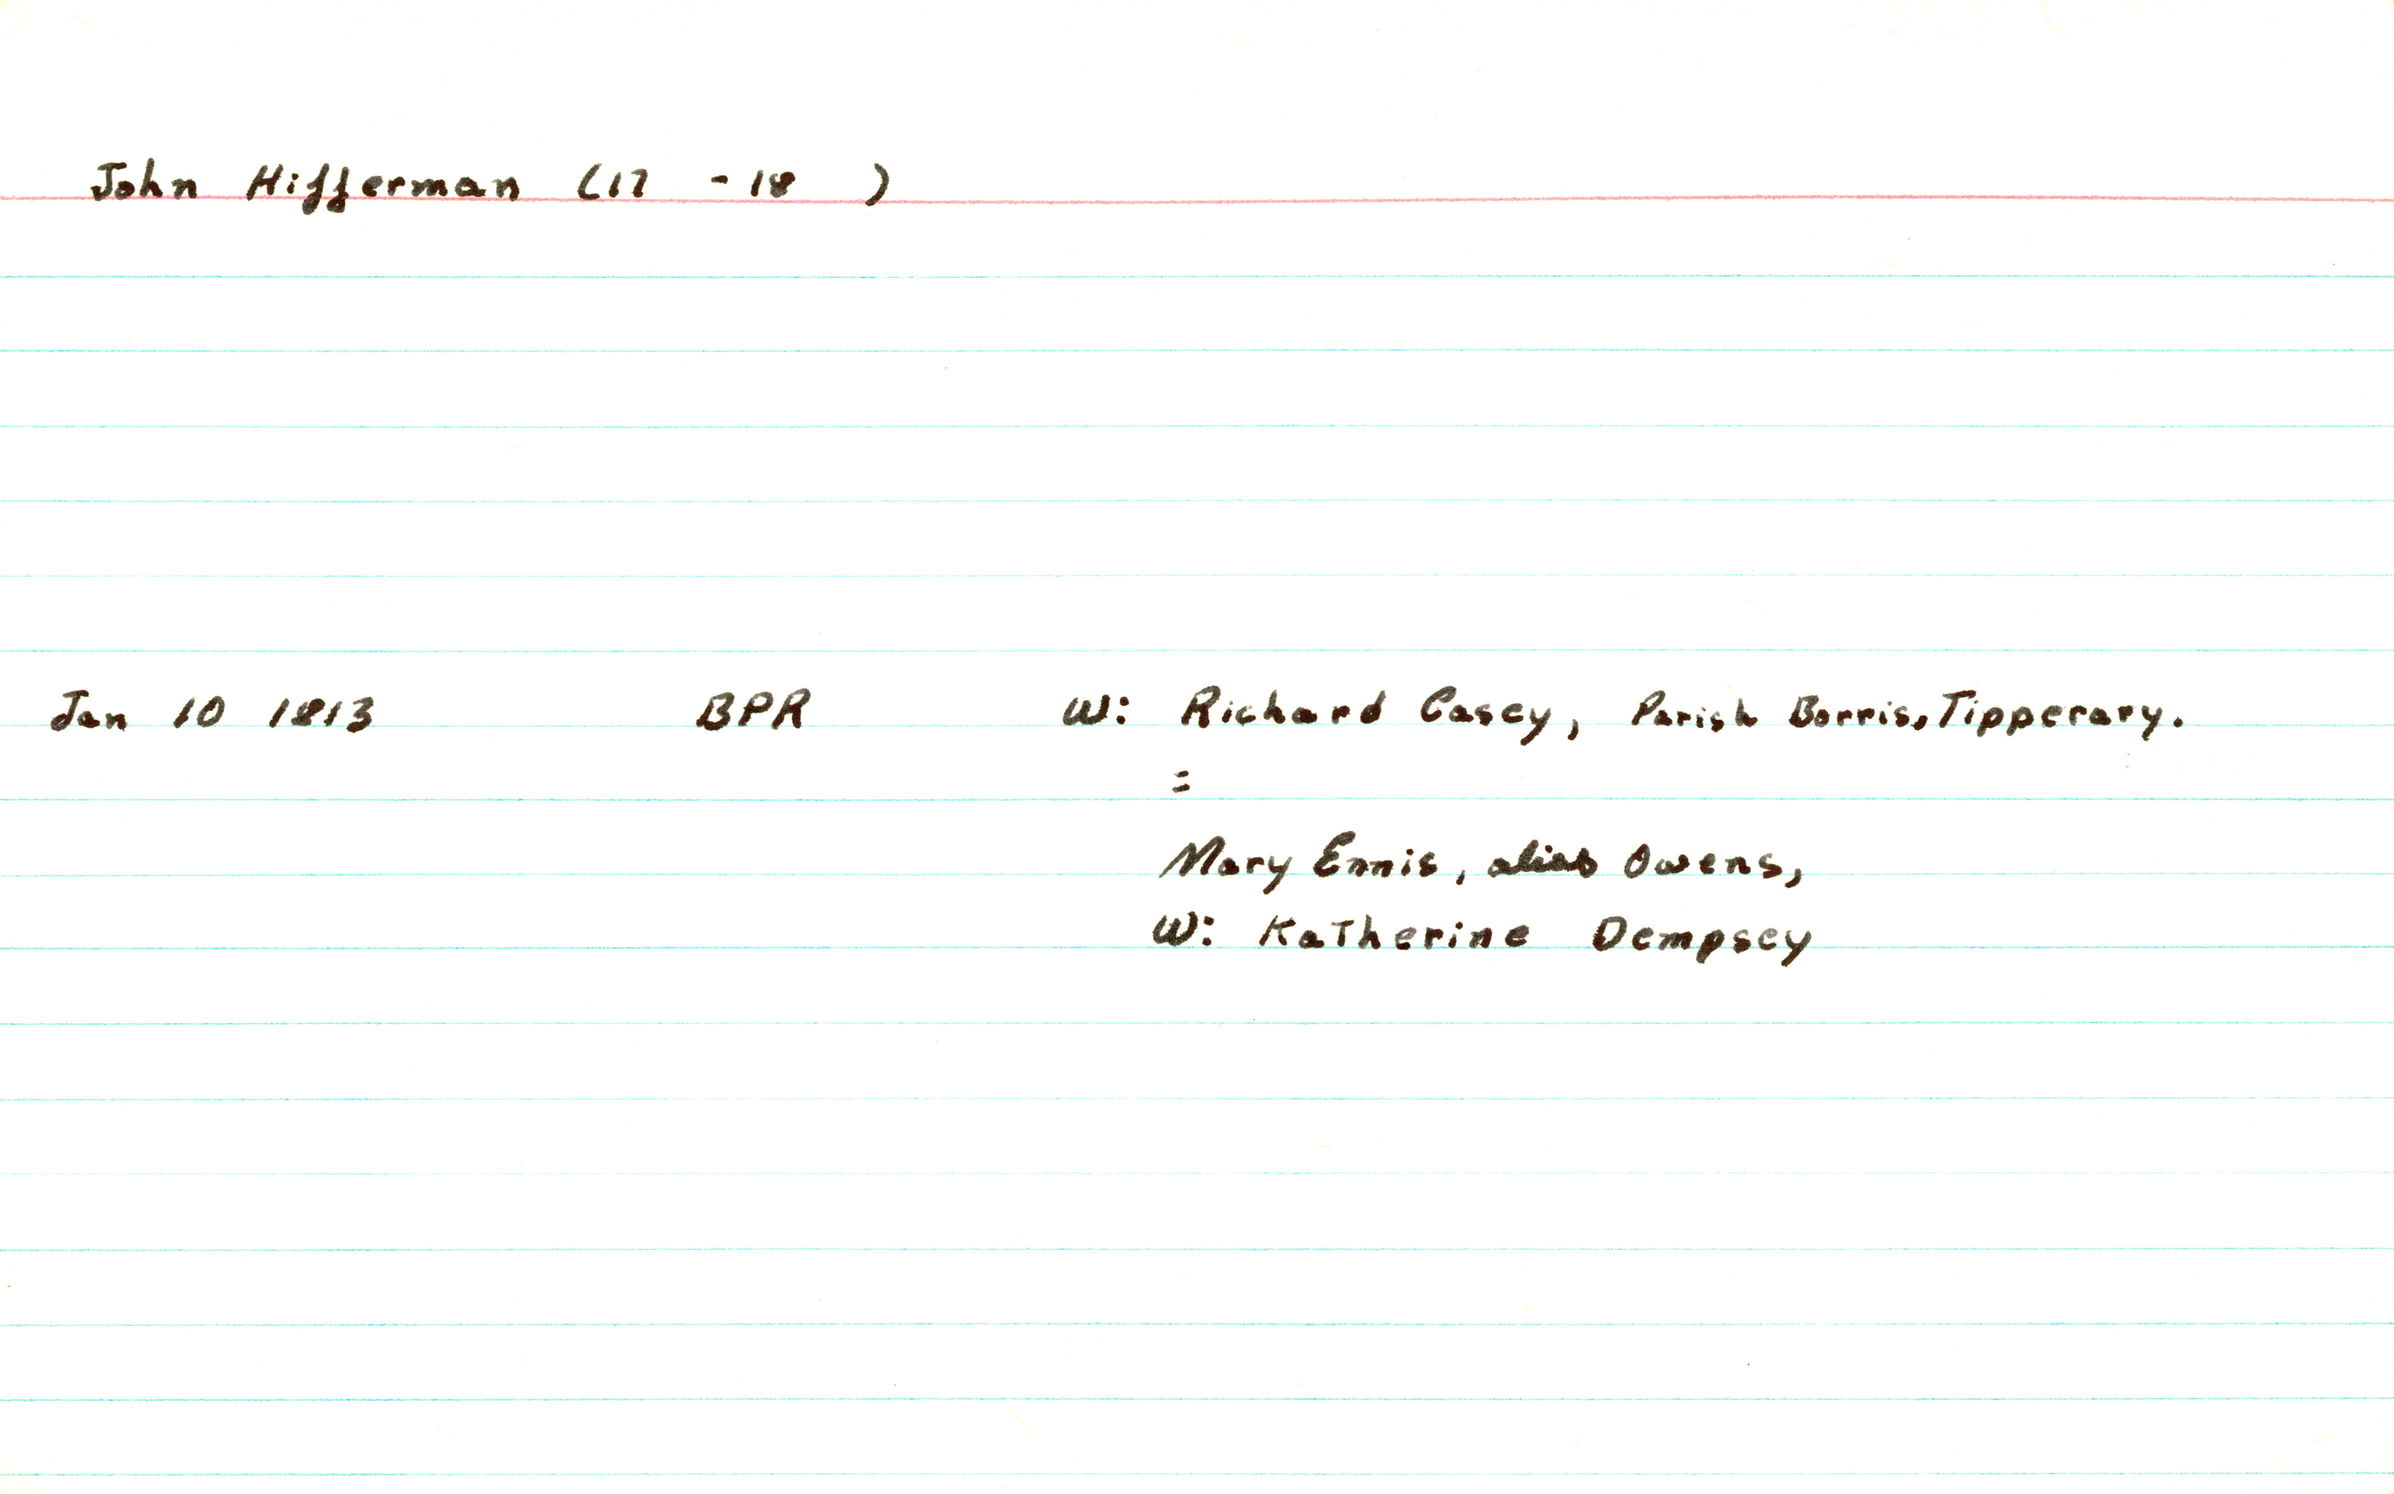 John Hifferman (17 - 18 )
Jan 10 1813 BPR W: Richard Casey, Parish Borris, Tipperary.
=
Mary Ennis, alias Owens,
W: Katherine Dempsey